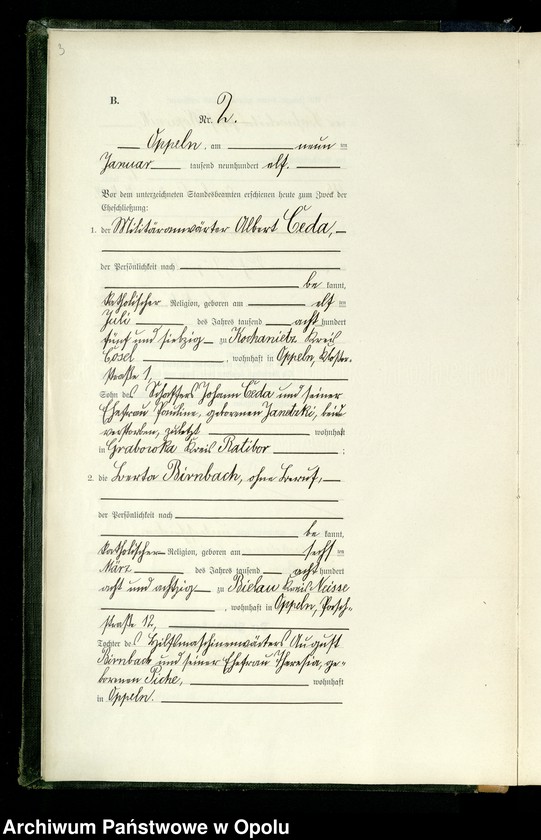 3
B.
Nr. 2.
Oppeln, am neun ten
Januar tausend neunhundert elf.
Vor dem unterzeichneten Standesbeamten erschienen heute zum Zweck der
Eheschließung:
1. der Militäranwärter Albert Ceda,
der Persönlichkeit nach
be kannt,
katholischer Religion, geboren am elf ten
Juli des Jahres tausend acht hundert
fünf und siebzig zu Kochanietz Kreis
Cosel, wohnhaft in Oppeln, Kloster-
straße 1,
Sohn des Schaffers Johann Ceda und seiner
Ehefrau Pauline, geborenen, beide
verstorben, zuletzt wohnhaft
in Grabowka Kreis Ratibor;
2. die Berta Birnbach, ohne Beruf,
der Persönlichkeit nach
be kannt,
katholischer Religion, geboren am sechs ten
März des Jahres tausend acht hundert
acht und achtzig zu Bielau Kreis Neisse
, wohnhaft in Oppeln,
straße 12,
Tochter des Hilfsmaschinenwärters August
Birnbach und seiner Ehefrau Theresia, ge-
borenen, wohnhaft
in Oppeln.
Archiwum Państwowe w Opolu